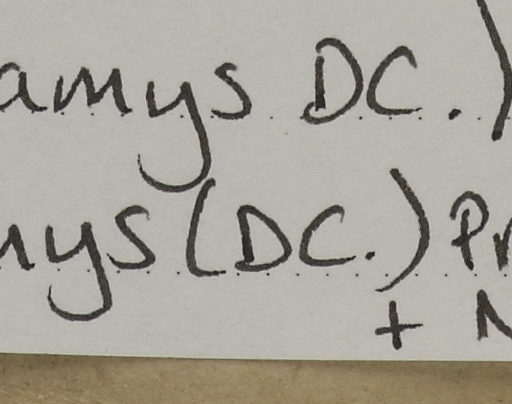 amys DC.)
mys (DC.) Pr
+ N